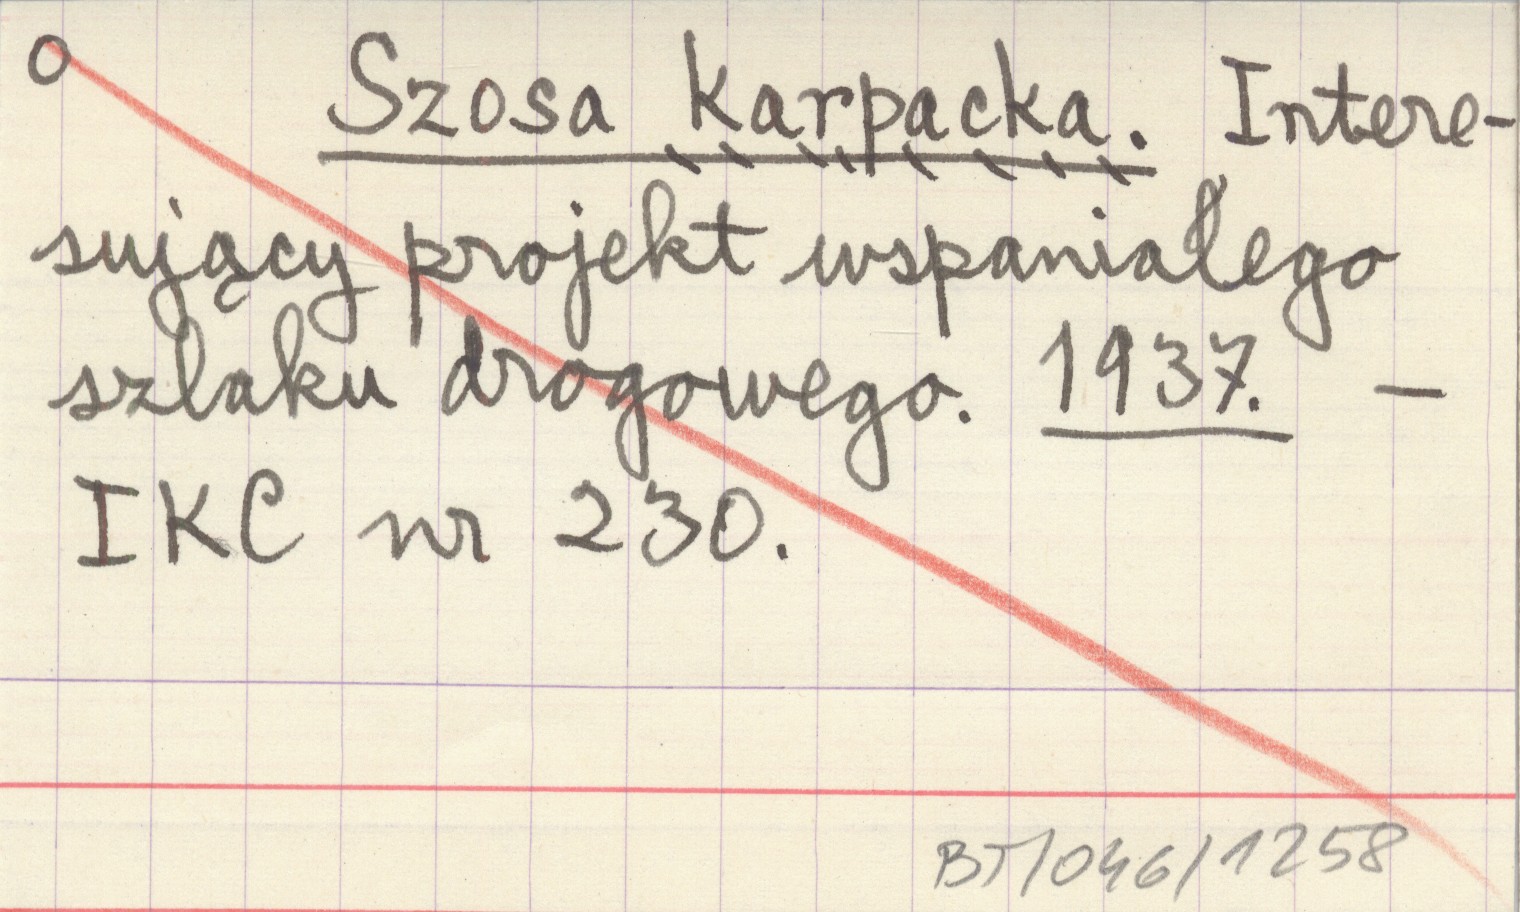 O
Szosa karpacka. Intere-
sujący projekt wspaniałego
szlaku drogowego. 1937. —
IKC nr 230.
BT/046/1258